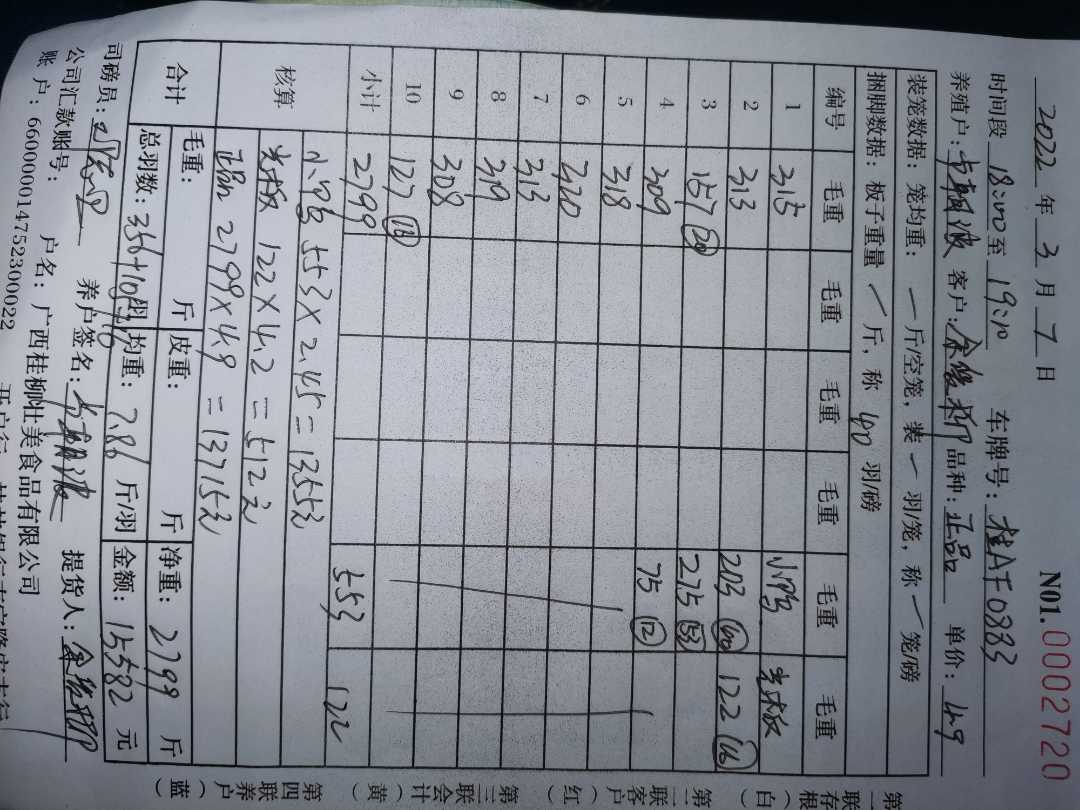 2022 年 3 月 7 日 N01.0002720
时间段 18:00 至 19:10 车牌号: 桂AF0883
养殖户: 客户: 品种: 正品 单价: 4.9
装笼数据: 笼均重: 一 斤/空笼, 装 一 羽/笼, 称 一 笼/磅
捆脚数据: 板子重量 / 斤, 称 40 羽/磅
编号 毛重 毛重 毛重 毛重 毛重 毛重
1 315 小鸭 光板
2 313 203 (40) 122 (16)
3 157 (20) 275 (53)
4 309 75 (12)
5 318
6 320
7 313
8 319
9 308
10 127 (13)
小计 2799 553 122
核算 小鸭 553×2.45=1355元
光板 122×4.2=512元
正品 2799×4.9=13715元
合计 毛重: 斤 皮重: 斤 净重: 2799 斤
总羽数: 羽 均重: 7.86 斤/羽 金额: 15582 元
司磅员: 养户签名: 提货人:
公司汇款账号: 户名: 广西桂柳牡美食品有限公司
账户: 660000014752300022
第一联存根(白)
第二联客户(红)
第三联会计(黄)
第四联养户(蓝)